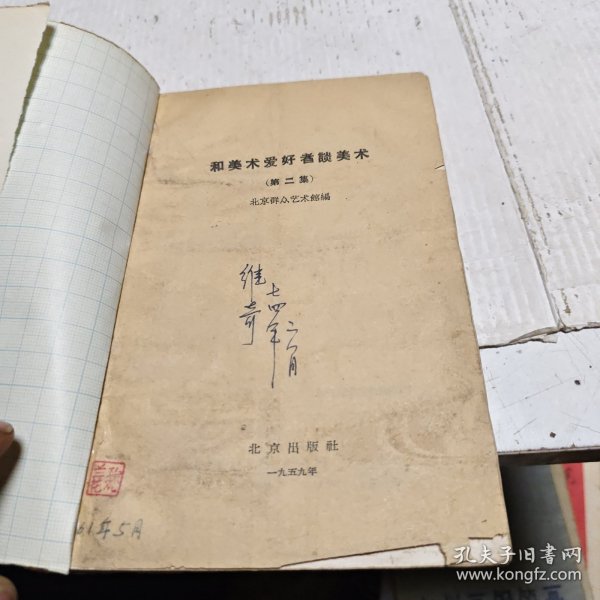 和美术爱好者談美术
(第二集)
北京群众艺术館編
维奇
七四年二月
北京出版社
一九五九年
61年5月
孔夫子旧书网
www.kongfz.com